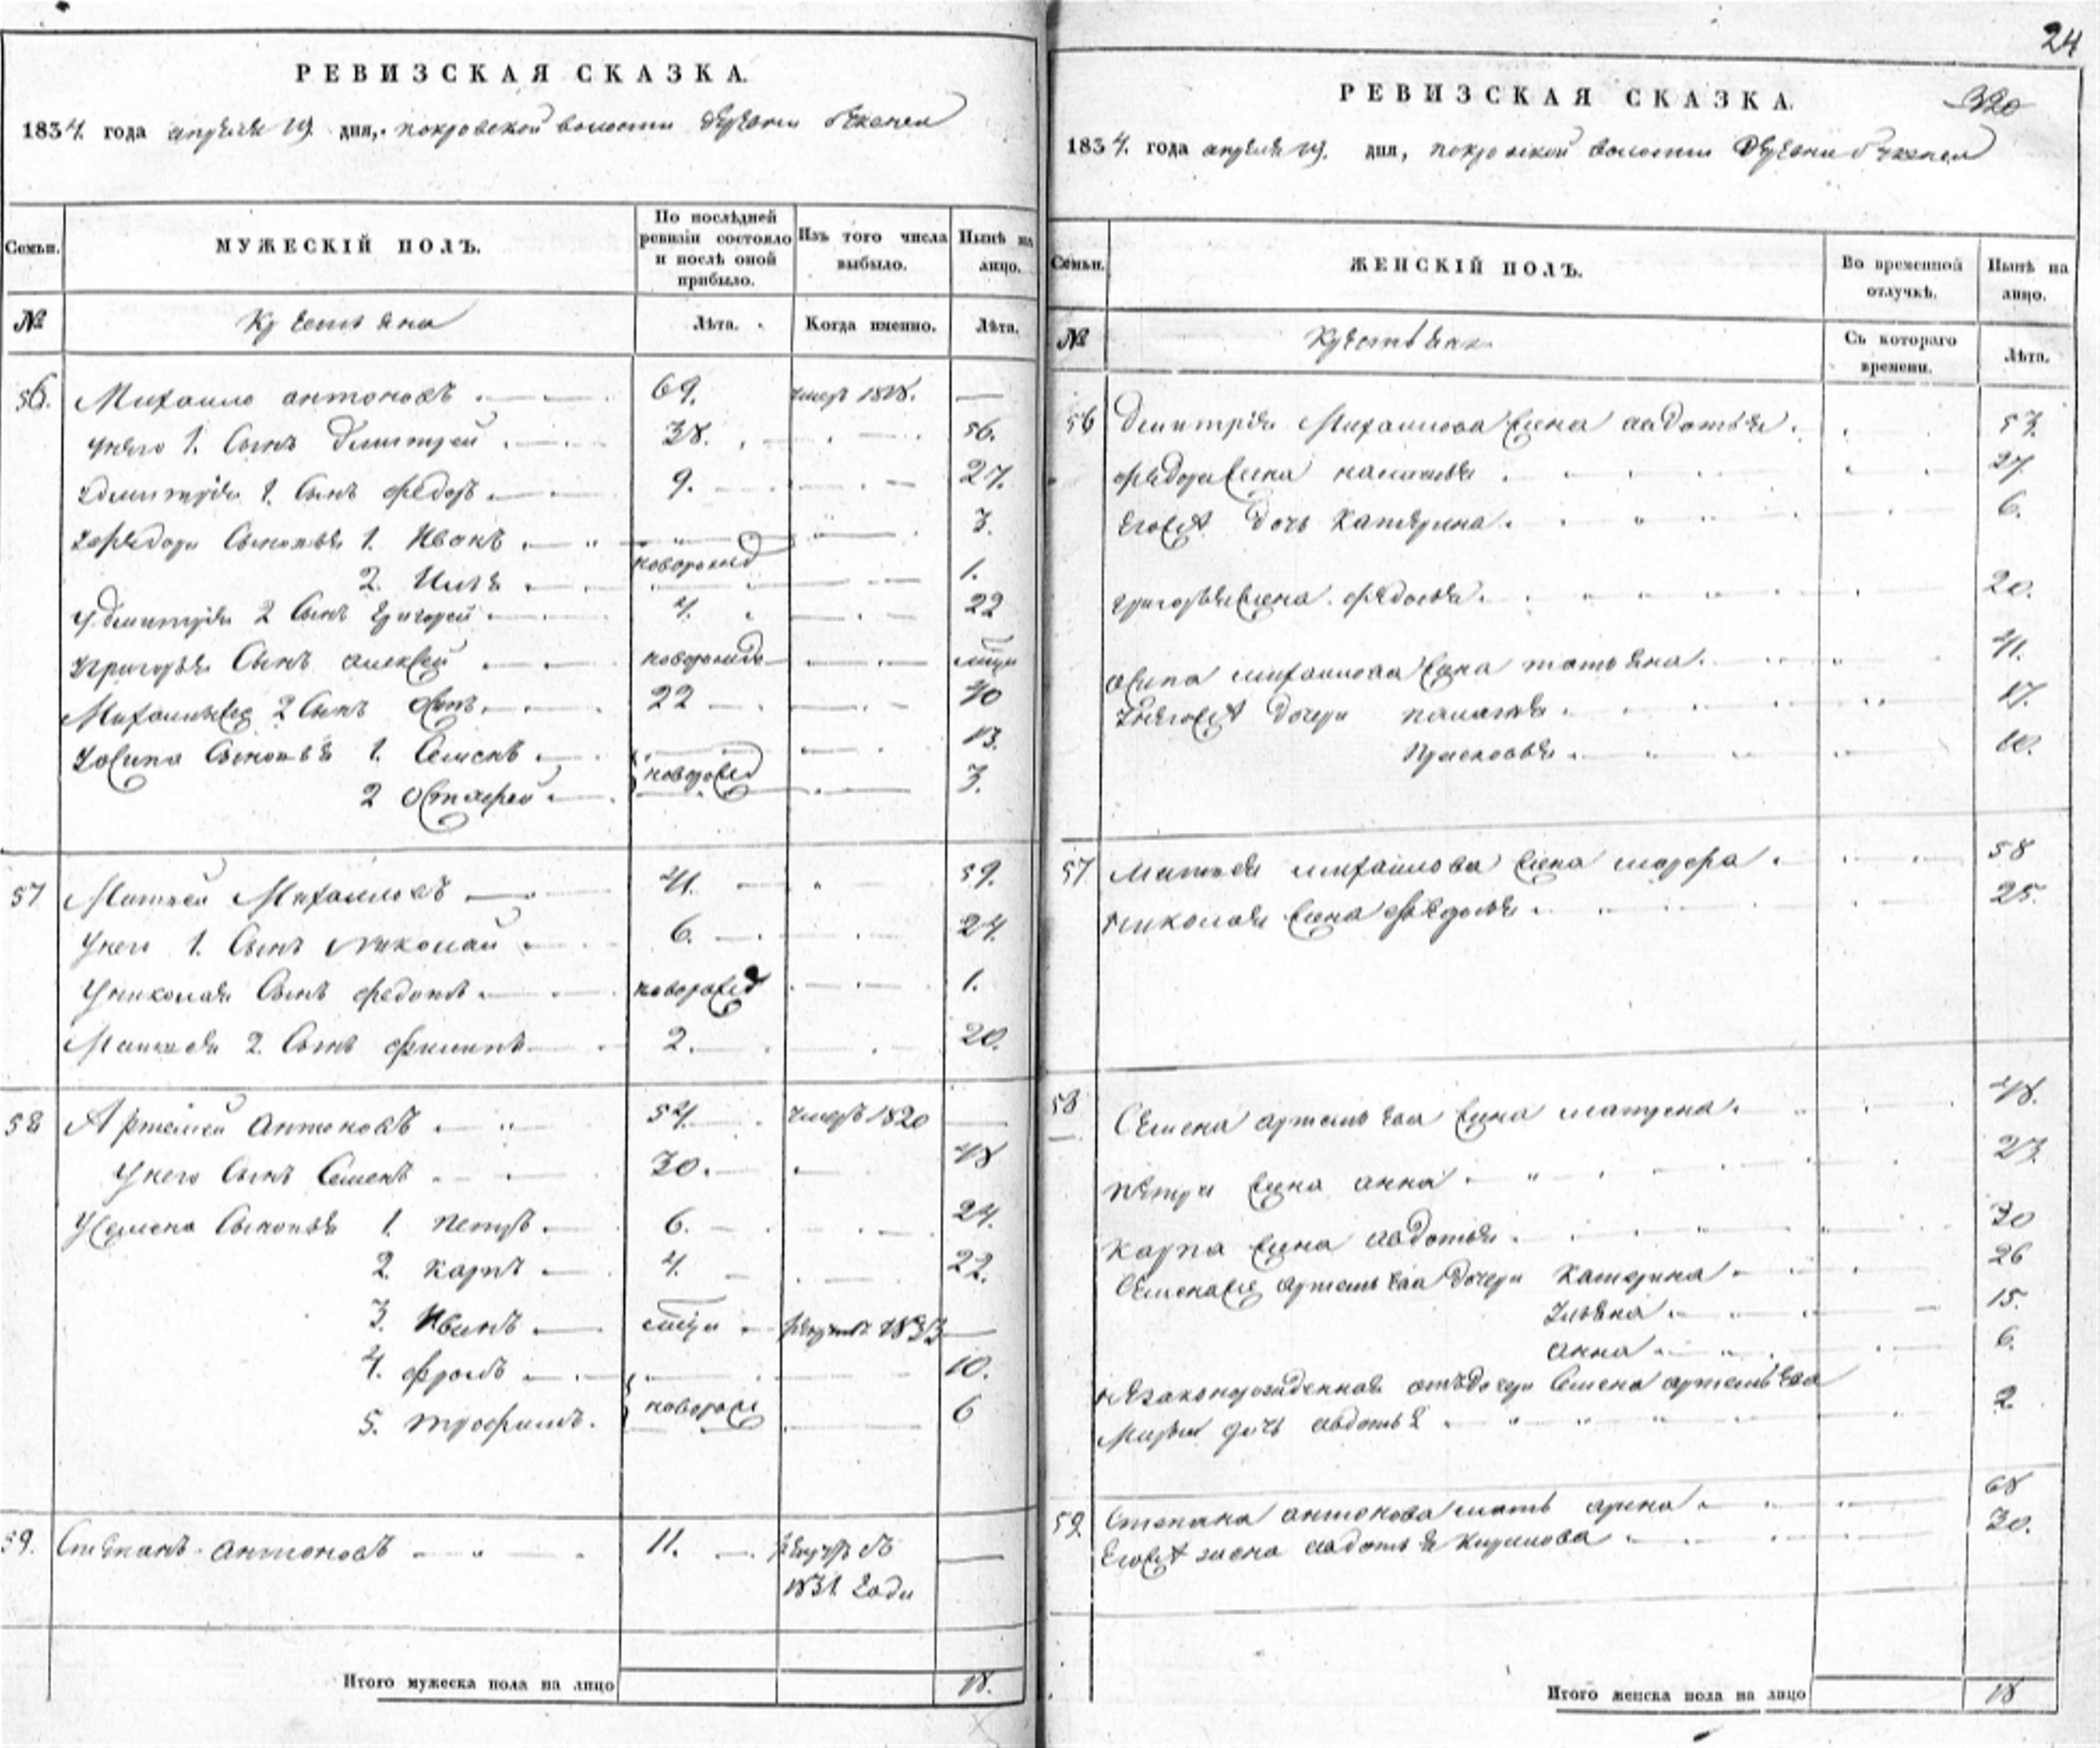 РЕВИЗСКАЯ СКАЗКА.
1834. года апреля 19. дня, покровской волости деревни
Семьи.
МУЖЕСКІЙ ПОЛЪ.
По послѣдней ревизіи состояло и послѣ оной прибыло.
Изъ того числа выбыло.
Нынѣ на лицо.
№
Крестьяна
Лѣта.
Когда именно.
Лѣта.
56. Михаило антоновъ 69. умеръ 1818. —
унего 1. Сынъ Дмитрей 38. 56.
Удмитрія 1. Сынъ федоръ 9. 27.
Уфедора Сыновья 1. Иванъ 3.
2. Илья новорожд 1.
Удмитрія 2 Сынъ Григорей 4. 22
Угригорья Сынъ алексей новорожде
Михаилы 2 Сынъ 22 40
Уосипа Сыновья 1. Семенъ 13.
2 Остафей 3.
57 Матвей Михаиловъ 41. 59.
Унего 1. Сынъ Николай 6. 24.
Униколая Сынъ федотъ 1.
Матвея 2. Сынъ филипъ 2. 20.
58 Артемей Антоновъ 54. умеръ 1820
Унего Сынъ Семенъ 30. 48
Усемена Сыновья 1. петръ 6. 24.
2. карпъ 4. 22.
3. Иванъ рекрутъ 1833
4. фролъ 10.
5. трофимъ. 6
59. Степанъ антоновъ 11. рекрутъ
1831. Года
Итого мужеска пола на лицо 18.
24
320
РЕВИЗСКАЯ СКАЗКА.
1834. года апреля 19. дня, покровской волости деревни
Семьи.
ЖЕНСКІЙ ПОЛЪ.
Во временной отлучкѣ.
Нынѣ на лицо.
№
Съ котораго времени.
Лѣта.
56 Дмитрія Михаилова жена авдотья 53.
федора жена 27.
его дочь Катерина 6.
григорья жена федосья 20.
осипа михаилова жена татьяна 41.
дочери палагея 17.
Прасковья 10.
57 Матвея михаилова жена марфа 58
николая жена федосья 25.
58 Семена артемьева жена матрена 48.
петра жена анна 23.
карпа жена авдотья 20
артемьева дочери Катерина 26
Ульяна 15.
анна 6.
незаконорожденная отъ дочери Семена артемьева
дочь авдотья 2
59. Степана антонова мать арина 68
его жена авдотья 30.
Итого женска пола на лицо 18